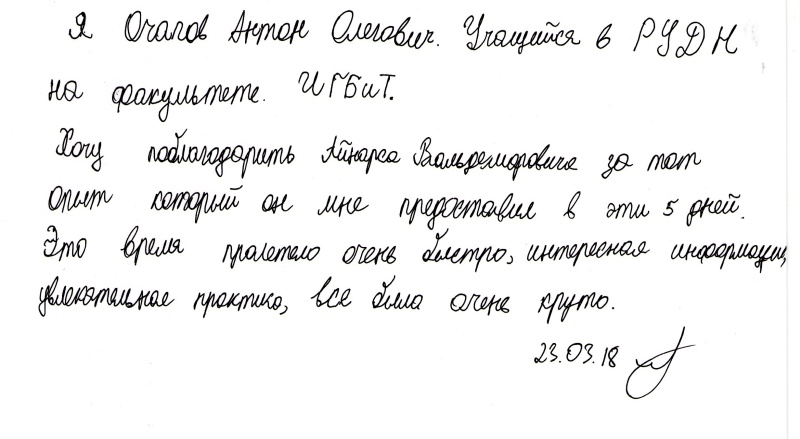 Я Очалов Антон Олегович. Учащийся в РУДН
на факультете. ИГБиТ.
Хочу поблагодарить Айнарса Вальдемаровича за тот
опыт который он мне предоставил в эти 5 дней.
Это время пролетело очень быстро, интересная информация,
увлекательная практика, все было очень круто.
23.03.18